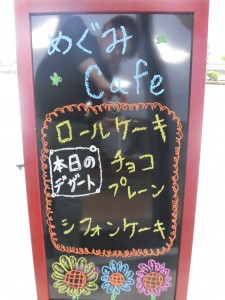 めぐみ
Cafe
ロールケーキ
本日の
デザート
チョコ
プレーン
シフォンケーキ